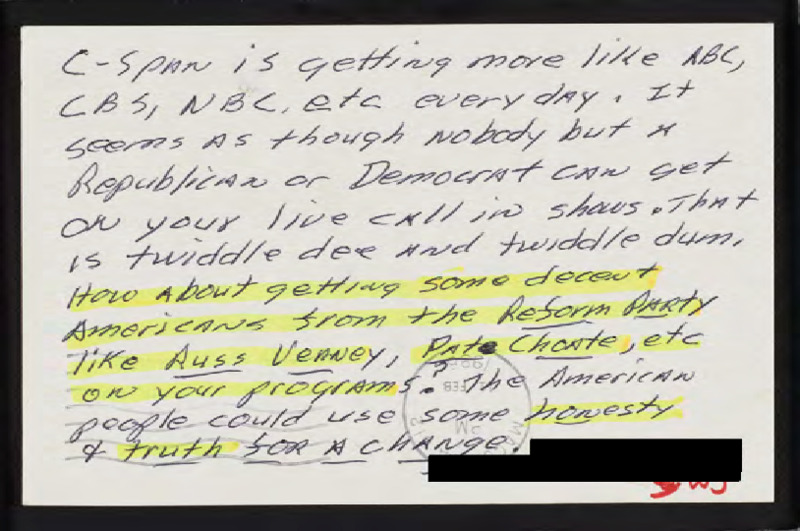 C-Span is getting more like ABC,
CBS, NBC, etc every day. It
seems as though nobody but a
Republican or Democrat can get
on your live call in shows. That
is twiddle dee and twiddle dum.
How about getting some decent
Americans from the Reform Party
like Russ Verney, Pat Choate, etc
on your programs? The American
people could use some honesty
& truth for a change.
FEB
PM
WJ